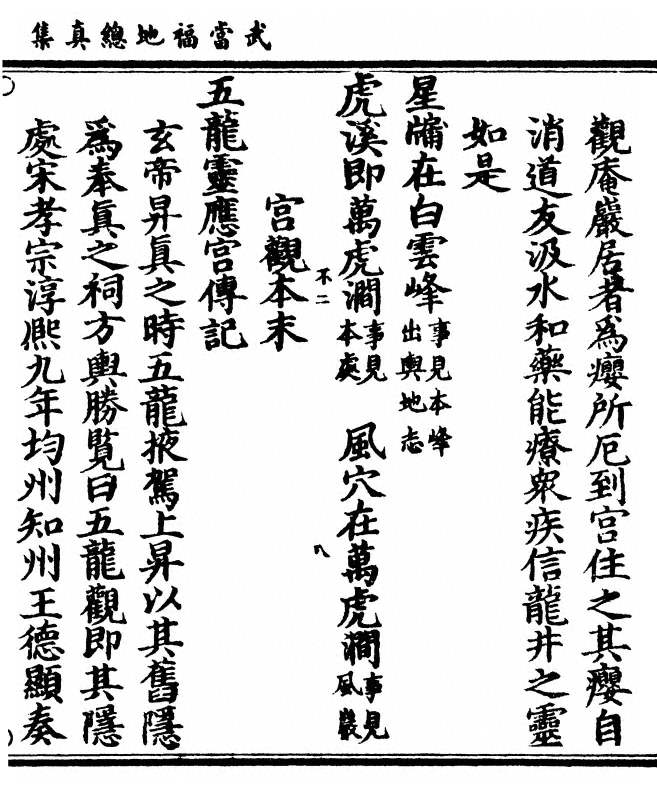 武當福地總真集
觀庵巖居者爲癭所厄到宫住之其癭自
消道友汲水和藥能療衆疾信龍井之靈
如是
星牖在白雲峰事見本峰出輿地志
虎溪即萬虎澗事見本處 風穴在萬虎澗事見風巖
不二 八
宫觀本末
五龍靈應宫傳記
玄帝昇真之時五龍掖駕上昇以其舊隱
爲奉真之祠方輿勝覧曰五龍觀即其隱
處宋孝宗淳熈九年均州知州王德顯奏